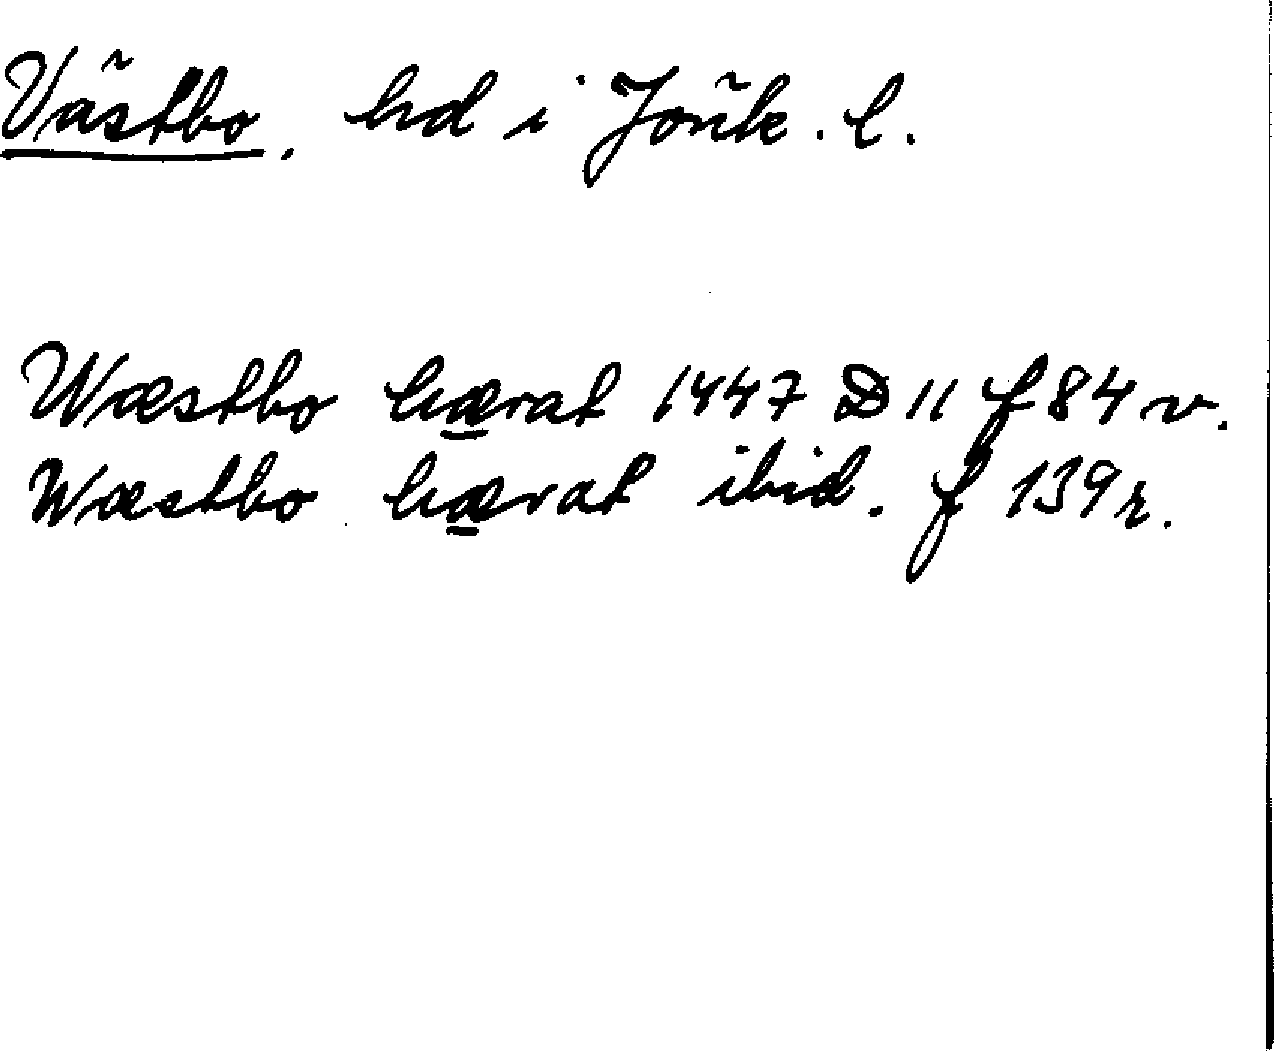 Västbo. hd i Jönk. l.
Wæstbo hærat 1447 D 11 f 84 v.
Wæstbo hærat ibid. f 139 r.